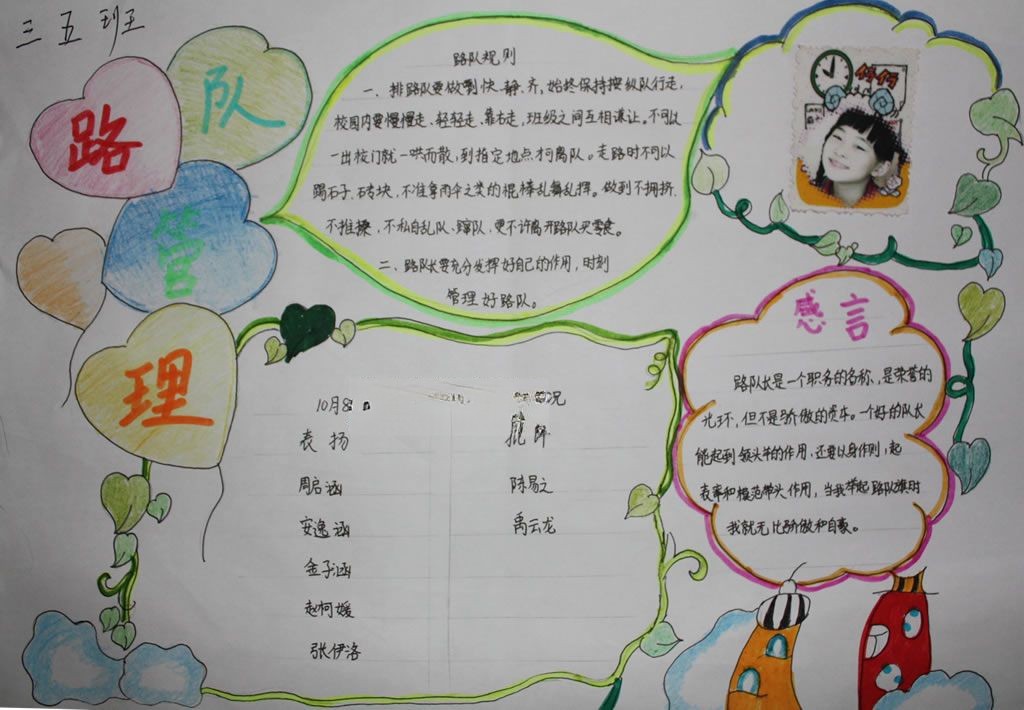 三五班
路
队
管
理
路队规则
一、排路队要做到快、静、齐,始终保持按纵队行走,
校园内要慢慢走、轻轻走、靠右走,班级之间互相谦让。不可以
一出校门就一哄而散,到指定地点才可离队。走路时不可以
踢石子、砖块,不准拿雨伞之类的棍棒乱舞乱挥。做到不拥挤,
不推搡,不私自乱队、蹿队,更不许离开路队买零食。
二、路队长要充分发挥好自己的作用,时刻
管理好路队。
感言
路队长是一个职务的名称,是荣誉的
光环,但不是骄傲的资本。一个好的队长
能起到领头羊的作用,还要以身作则,起
表率和模范带头作用,当我举起路队旗时
我就无比骄傲和自豪。
10月8 况
表扬 批
周启涵 陈易之
安逸涵 禹云龙
金子涵
赵柯媛
张伊洛